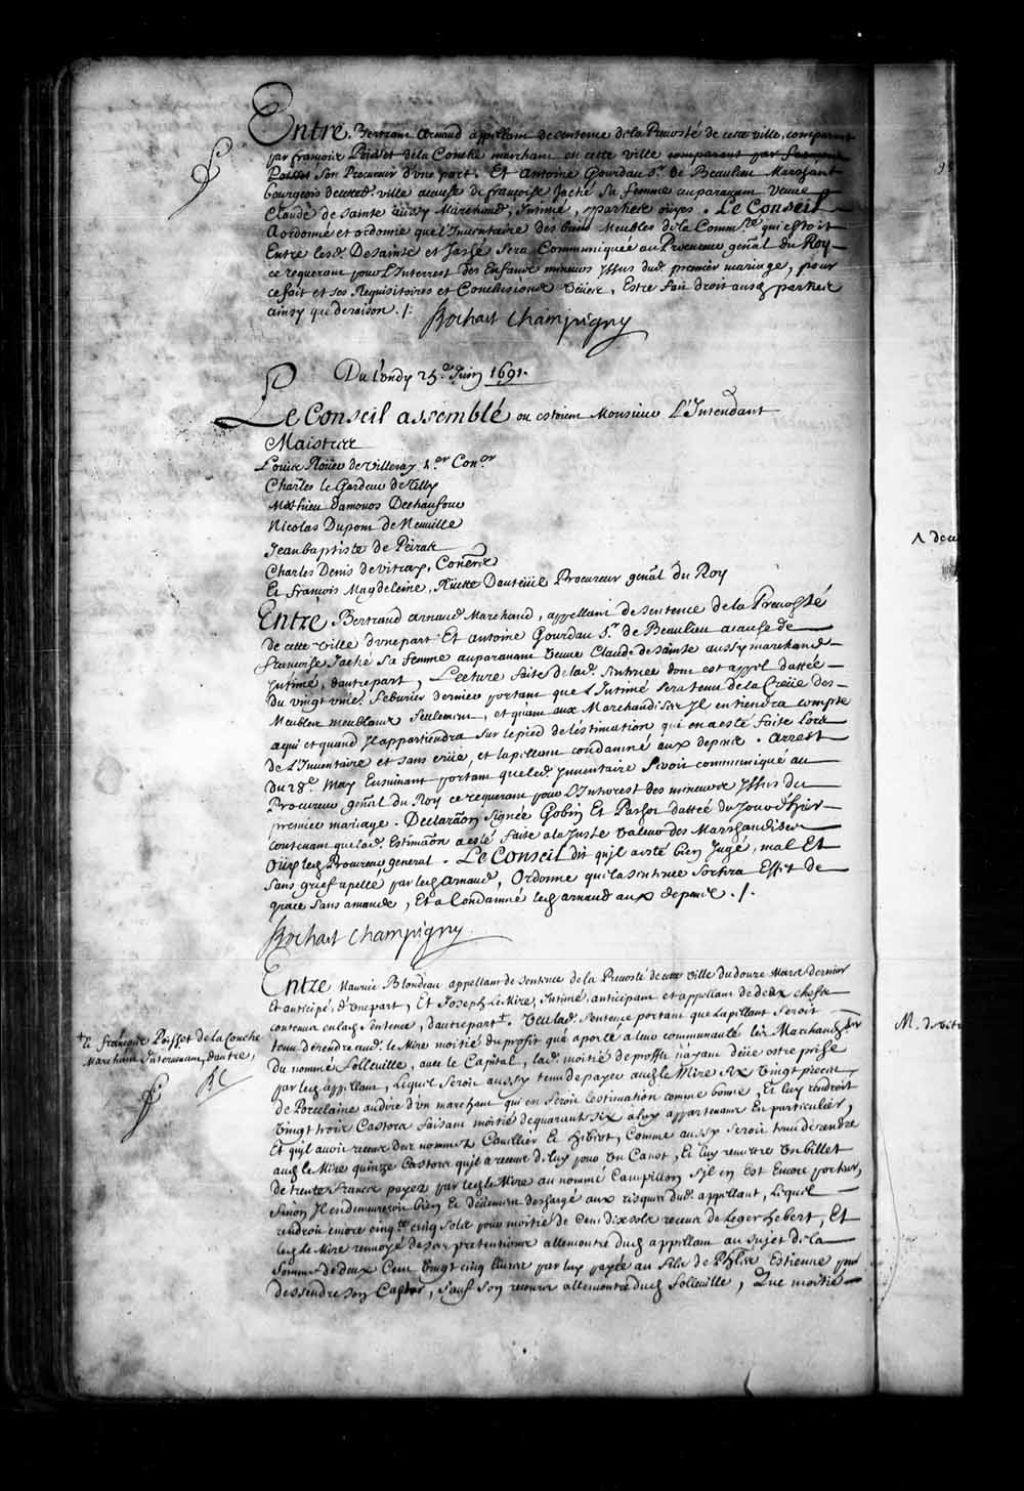 Entre Bertrand Arnaud appellant de sentence de la Prevosté de cette ville, comparant
par françois Poisset dela Conche marchant en cette ville comparant par francois
Poisset son Procureur d'une part. Et Antoine Gourdau Sr. de Beaulieu Marchant
bourgeois de cette ville acause de françoise Jaché sa femme auparavant veuve
Claude de sainte aussy Marchand, Intimé, parties ouyes. Le Conseil
a ordonné et ordonne que l'Inventaire des biens Meubles dela Commté. qui estoit
Entre lesd. De sainte et Jaché sera Communiquée au Procureur genãl du Roy
ce requerant pour l'Interrest des Enfans mineurs yssus dud. premier mariage, pour
ce fait et ses Requisitoires et Conclusions veües, Estre fait droit ausd. parties
ainsy que de raison ./.
Bochart Champigny
Du lundy 25e. Juin 1691.
Le Conseil assemblé ou estoient Monsieur L'Intendant
Maistres
Louis Roüer de Villeray 1.er Con.er
Charles le Gardeur de Tilly
Mathieu Damours Deschaufour
Nicolas Dupont de Neuville
Jean baptiste de Peiras
Charles Denis de vitray, Coners
Et François Magdeleine, Rüette Dauteüil Procureur genãl du Roy
Entre Bertrand arnaud Marchand, appellant de sentence de la Prevosté
de cette ville d'une part Et antoine Gourdau Sr. de Beaulieu acause de
françoise Jaché sa femme auparavant veuve Claude de sainte aussy marchand
Intimé, d'autre part, Lecture faite de lad. sentence dont est appel dattée
du vingt unie. feburier dernier portant que l'Intimé sera tenu de la Creüe des
Meubles meublans seulement, et quant aux Marchandises Il en tiendra compte
a qui et quand Il appartiendra sur le pied de lestimation qui en a esté faite lors
de l'Inventaire et sans crüe, et lapellant condamné aux depens. Arrest
du 28e. May Ensuivant portant que led. Inventaire seroit communiqué au
Procureur genãl du Roy ce requerant pour l'Interest des mineurs yssus du
premier mariage. Declaraõn signée Gobin Et Pachot dattée du Jour d'hier
contenant que lad. Estimaõn a esté faite a la juste valeur des Marchandises
Ouÿ led. Procureur general. Le Conseil dit qu'il a esté bien Jugé, mal Et
sans grief apellé par led. Arnaud, Ordonne que la sentence sortira Effet de
grace sans amande, Et a Condamné led. arnaud aux depens ./.
Bochart Champigny
Entre Maurice Blondeau appellant de sentence de la Prevosté de cette ville du douze Mars dernier
et anticipé, d'une part, Et Joseph Le Mire, Intimé, anticipant et appellant de deux chefs
contenus en lad. sentence, d'autre part +. Veu lad. sentence portant que Lapellant seroit
tenu de rendre aud. le Mire moitié du profit qua aporté a leur communauté les Marchandises
du nommé Solleuille, avec le Capital, lad. moitié de proffit nayant deüe estre prise
par led. appellant, Lequel seroit aussy tenu de payer aud. le Mire six vingt pieces
de Porcelaine au dire d'un marchant qui en seroit l'estimation comme bonne, Et luy rendroit
vingt trois Castors faisant moitié de quarante six a luy appartenans En particulier,
Et quil avoit receus des nommés Cauillier Et hibert, Comme aussy seroit tenu de rendre
aud. le Mire quinze Castors qu'il a receus de luy pour un Canot, Et luy remettre un billet
de trente francs payez par led. le Mire au nommé Campillon s'jl en est Encore porteur,
sinon Jl en demeureroit bien Et deüement deschargé aux risques dud. appellant, Lequel
rendroit encore cinqte. cinq sols pour moitié de Cent dix sols receus de Leger hebert, Et
led. le Mire renvoyé de ses pretentions allencontre dud. appellant au sujet de la
somme de deux Cent vingt cinq livres par luy payée au fils de Phlipes Estienne pour
dessendre son Castor, sauf son recours allencontre dud. Solleuille, Que moitié
+ Et françois Poisset de la Conche
Marchant Intervenant, d'autre,
BC
A deux
M. de vitr